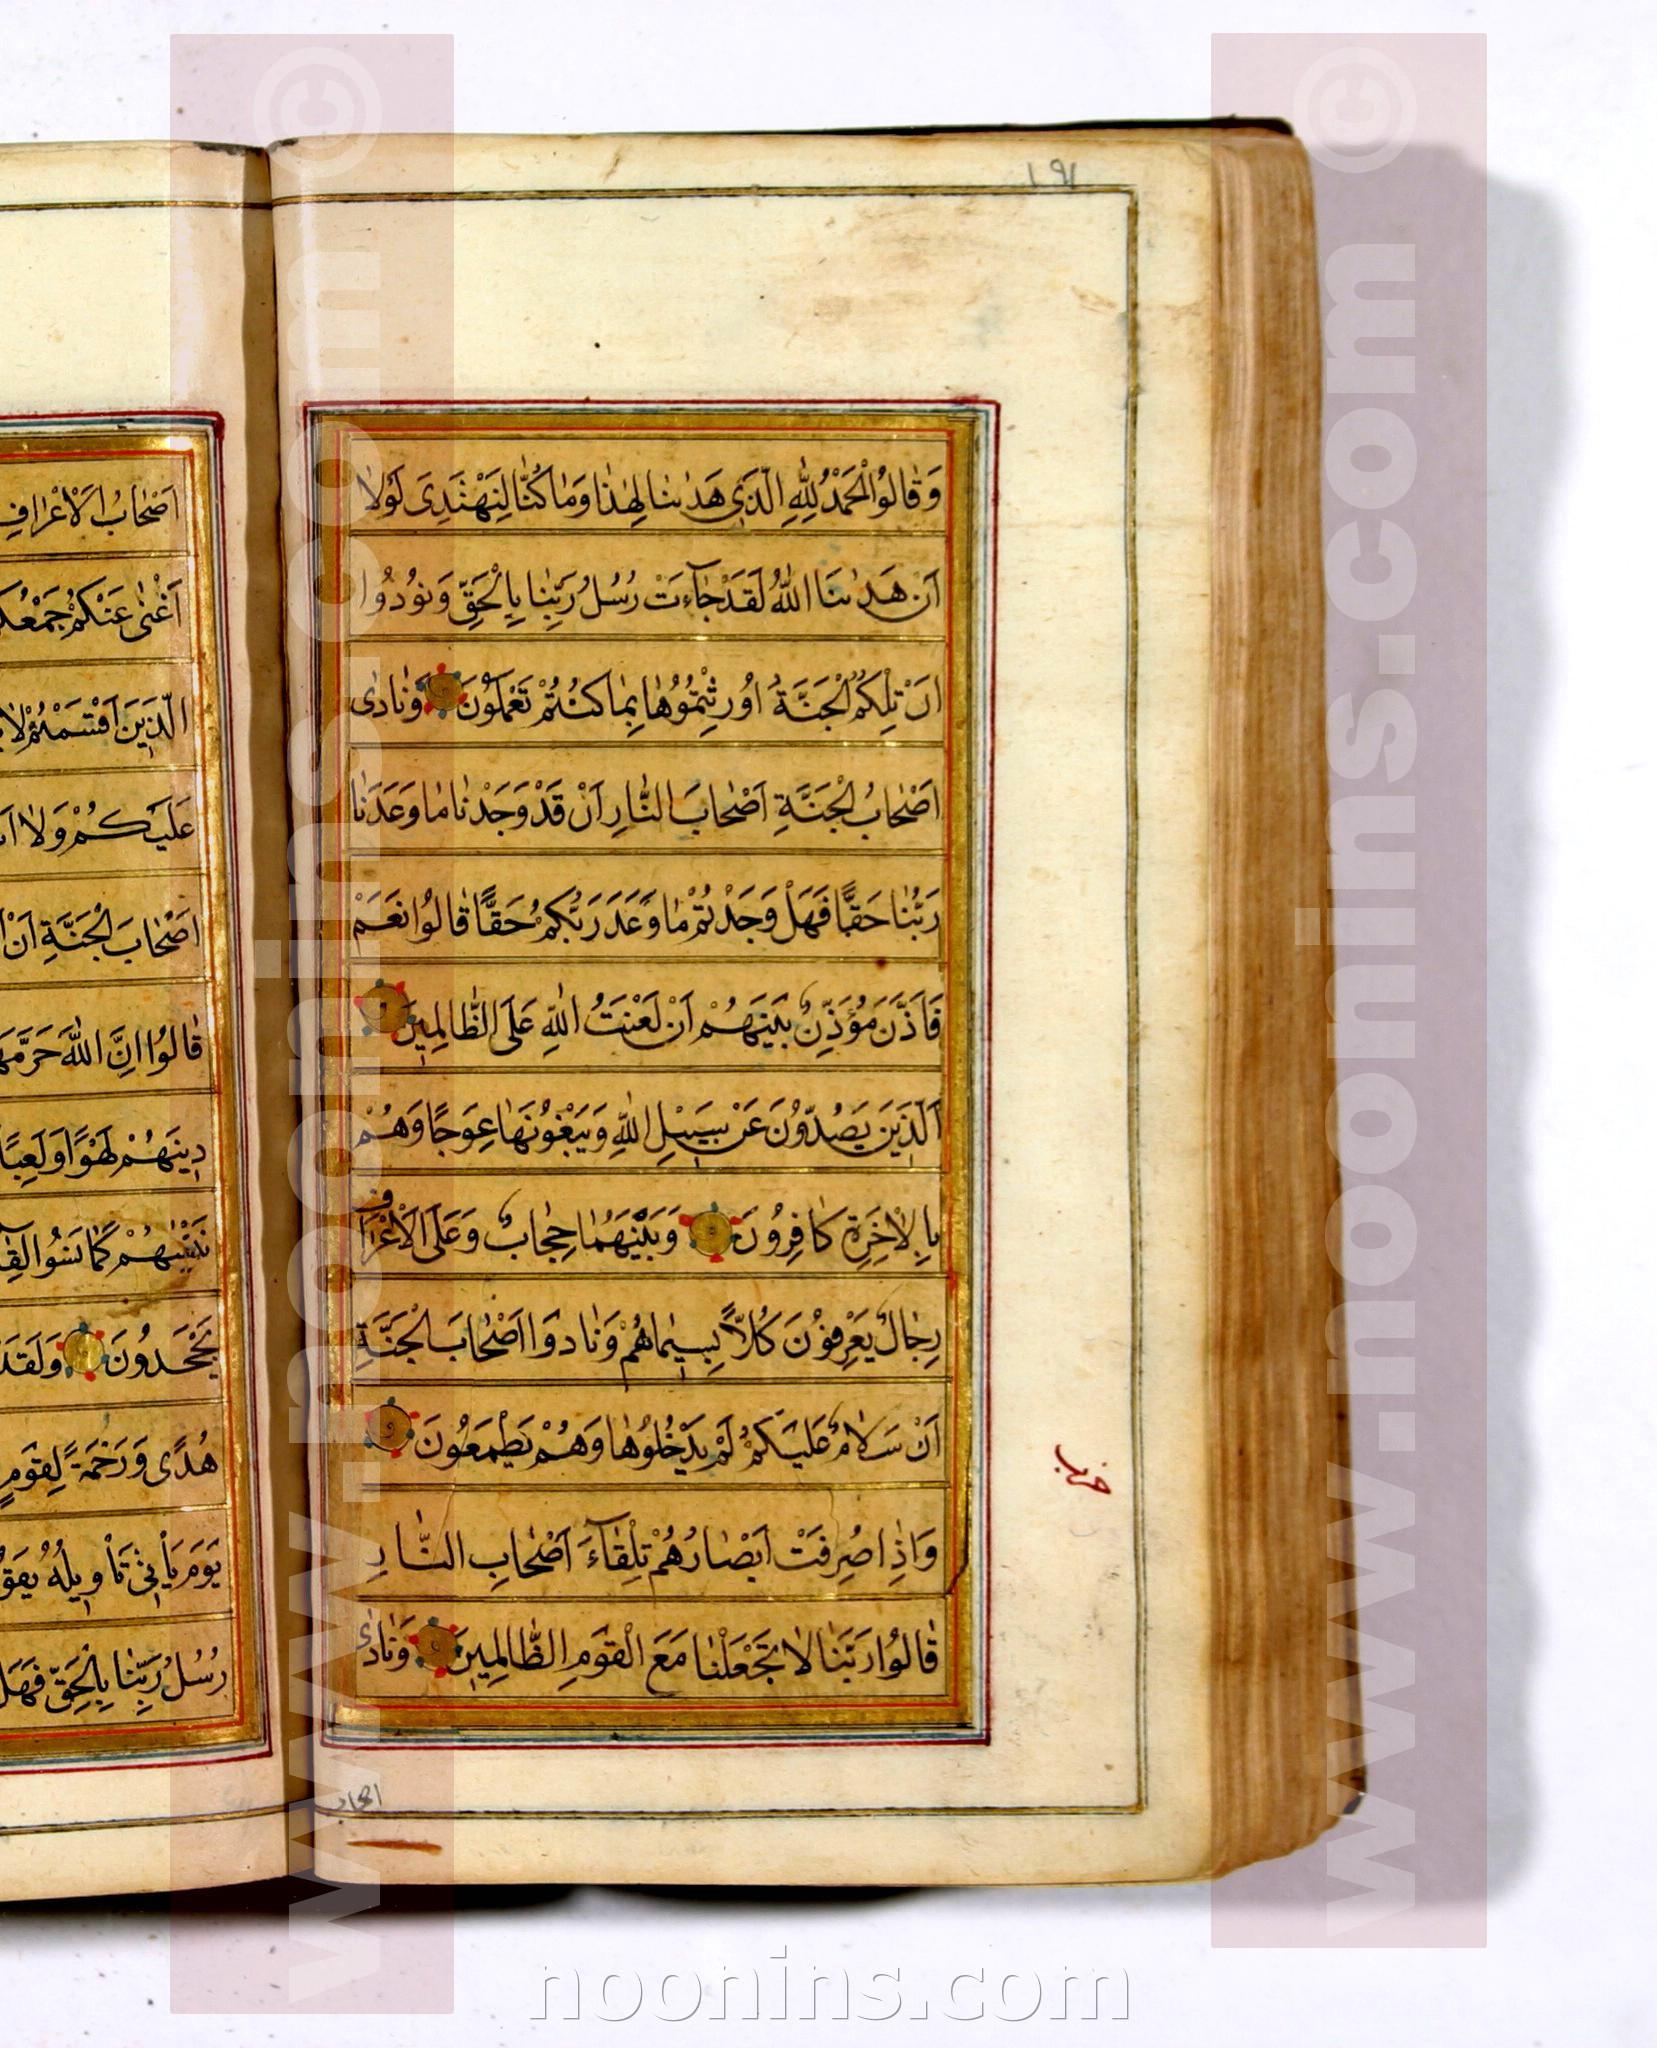 ١٩١
وَقٰالُوا الْحَمْدُ لِلّٰهِ الَّذِي هَدٰىنٰا لِهٰذٰا وَمٰا كُنّٰا لِنَهْتَدِيَ لَوْلٰا
اَنْ هَدٰىنَا اللّٰهُ لَقَدْ جٰآءَتْ رُسُلُ رَبِّنٰا بِالْحَقِّ وَنُودُوا
اَنْ تِلْكُمُ الْجَنَّةُ اُورِثْتُمُوهٰا بِمٰا كُنْتُمْ تَعْمَلُونَ وَنٰادٰى
اَصْحٰابُ الْجَنَّةِ اَصْحٰابَ النّٰارِ اَنْ قَدْ وَجَدْنٰا مٰا وَعَدَنٰا
رَبُّنٰا حَقًّا فَهَلْ وَجَدْتُمْ مٰا وَعَدَ رَبُّكُمْ حَقًّا قٰالُوا نَعَمْ
فَاَذَّنَ مُؤَذِّنٌ بَيْنَهُمْ اَنْ لَعْنَتُ اللّٰهِ عَلَى الظّٰالِمِينَ
اَلَّذِينَ يَصُدُّونَ عَنْ سَبِيلِ اللّٰهِ وَيَبْغُونَهٰا عِوَجًا وَهُمْ
بِالْاٰخِرَةِ كٰافِرُونَ وَبَيْنَهُمٰا حِجٰابٌ وَعَلَى الْاَعْرٰافِ
رِجٰالٌ يَعْرِفُونَ كُلًّا بِسِيمٰاهُمْ وَنٰادَوْا اَصْحٰابَ الْجَنَّةِ
اَنْ سَلٰامٌ عَلَيْكُمْ لَمْ يَدْخُلُوهٰا وَهُمْ يَطْمَعُونَ
حزب
وَاِذٰا صُرِفَتْ اَبْصٰارُهُمْ تِلْقٰآءَ اَصْحٰابِ النّٰارِ
قٰالُوا رَبَّنٰا لٰا تَجْعَلْنٰا مَعَ الْقَوْمِ الظّٰالِمِينَ وَنٰادٰى
اصحاب
اَصْحٰابُ الْاَعْرٰافِ
اَغْنٰى عَنْكُمْ جَمْعُكُمْ
الَّذِينَ اَقْسَمْتُمْ لٰا
عَلَيْكُمْ وَلٰا
اَصْحٰابَ الْجَنَّةِ اَنْ
قٰالُوا اِنَّ اللّٰهَ حَرَّمَهُمٰا
دِينَهُمْ لَهْوًا وَلَعِبًا
نَنْسٰيهُمْ كَمٰا نَسُوا لِقٰآءَ
يَجْحَدُونَ وَلَقَدْ
هُدًى وَرَحْمَةً لِقَوْمٍ
يَوْمَ يَأْتِي تَأْوِيلُهُ يَقُولُ
رُسُلُ رَبِّنٰا بِالْحَقِّ فَهَلْ
www.noonins.com ©
www.noonins.com ©
noonins.com